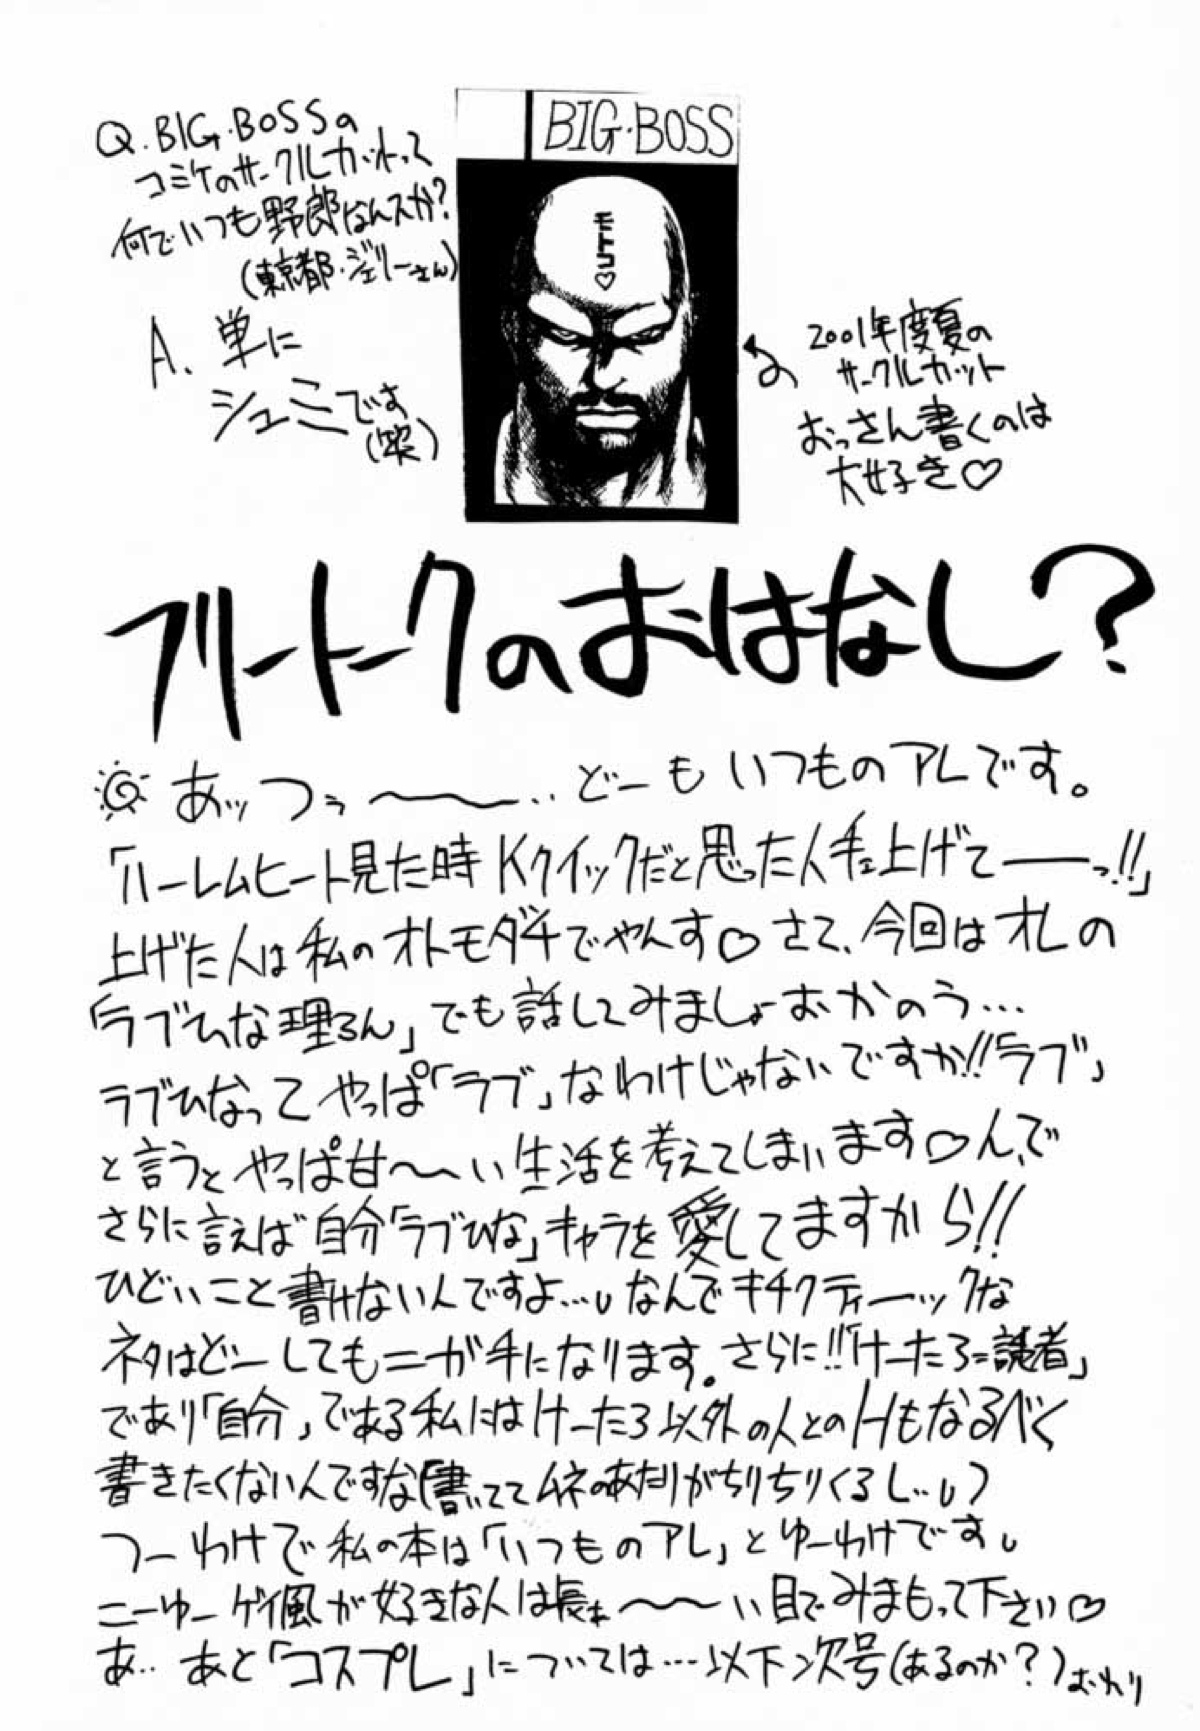 Q.BIG・BOSSの
コミケのサークルカットって
何でいつも野郎なんスか?
(東京都・ジェリーさん)
A.単に
シュミです
(笑)
BIG・BOSS
モてU♡
2001年度夏の
サークルカット
おっさん書くのは
大好き♡
フリートークのおはなし?
あッつぅ〜〜‥どーもいつものアレです。
「ハーレムヒート見た時Kクイックだと思った人手ェ上げてーーっ!!」
上げた人は私のオトモダチでやんす♡さて、今回はオレの
「ラブひな理ろん」でも話してみましょーおかのう…
ラブひなってやっぱ「ラブ」なわけじゃないですか!!「ラブ」
と言うとやっぱ甘〜〜い生活を考えてしまいます♡んで
さらに言えば自分「ラブひな」キャラを愛してますから!!
ひどいこと書けない人ですよ…なんでキチクティーックな
ネタはどーしてもニガ手になります。さらに!!「けーたろ=読者」
であり「自分」である私にはけーたろ以外の人とのHもなるべく
書きたくないんですな(書いててムネのあたりがちりちりくるし‥)
つーわけで私の本は「いつものアレ」とゆーわけです。
ニーゆーゲイ風が好きな人は長ぁ〜〜い目でみまもって下さい♡
あ‥あと「コスプレ」については…以下次号(あるのか?)おわり